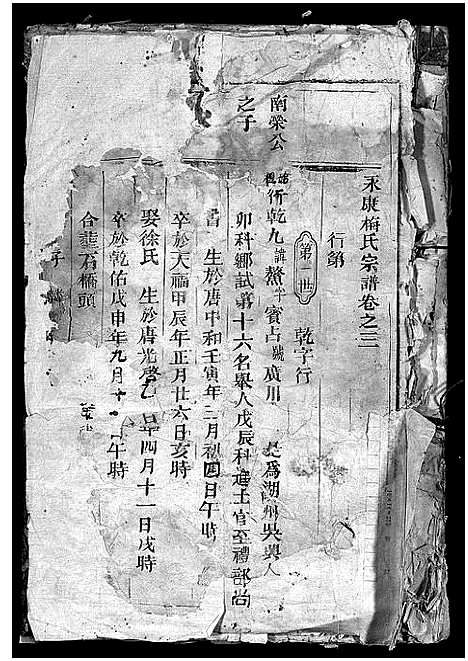 永康梅氏宗譜卷之三
行第
乾字行
第一世
南榮公
之子
行乾九諱熬字賓占號廣川 是為湖州吳興人
卯科鄉試第十六名舉人戊辰科進士官至禮部尚
書 生於唐中和壬寅年二月初四日午時
卒於天福甲辰年正月廿六日亥時
娶徐氏 生於唐光啓乙巳年四月十一日戌時
卒於乾佑戊申年九月十 日午時
合葬石橋頭
子